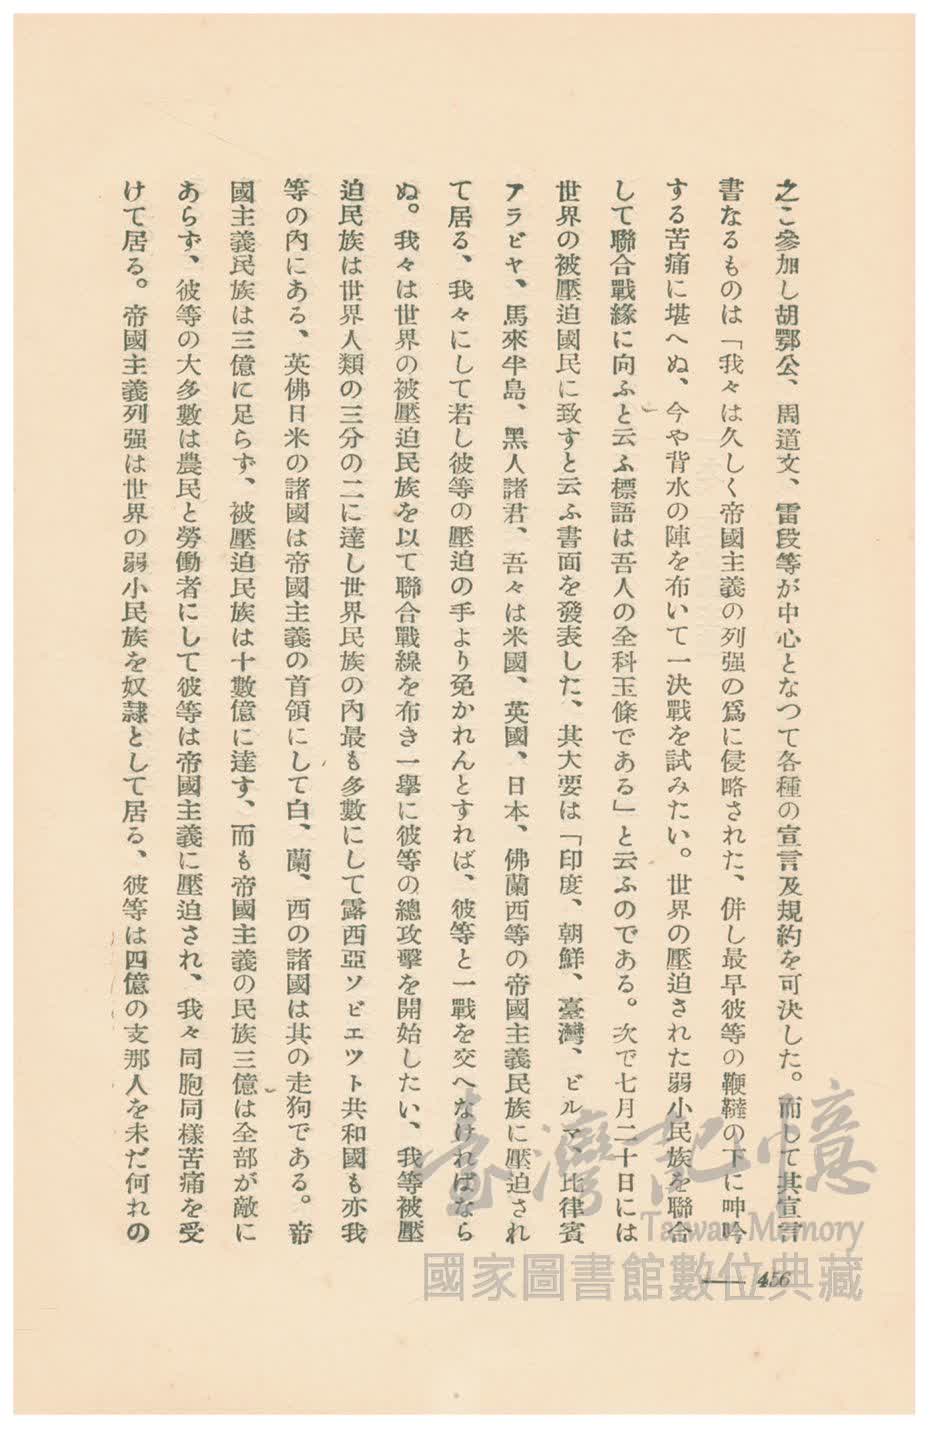 之こ參加し胡鄂公、周道文、雷段等が中心となつて各種の宣言及規約を可決した。而して其宣言
書なるものは「我々は久しく帝國主義の列强の爲に侵略された、併し最早彼等の鞭韃の下に呻吟
する苦痛に堪へぬ、今や背水の陣を布いて一決戰を試みたい。世界の壓迫された弱小民族を聯合
して聯合戰緣に向ふと云ふ標語は吾人の全科玉條である」と云ふのである。次で七月二十日には
世界の被壓迫國民に致すと云ふ書面を發表した、其大要は「印度、朝鮮、臺灣、ビルマ、比律賓
アラビヤ、馬來半島、黑人諸君、吾々は米國、英國、日本、佛蘭西等の帝國主義民族に壓迫され
て居る、我々にして若し彼等の壓迫の手より免かれんとすれば、彼等と一戰を交へなければなら
ぬ。我々は世界の被壓迫民族を以て聯合戰線を布き一擧に彼等の總攻擊を開始したい、我等被壓
迫民族は世界人類の三分の二に達し世界民族の內最も多數にして露西亞ソビエツト共和國も亦我
等の內にある、英佛日米の諸國は帝國主義の首領にして白、蘭、西の諸國は其の走狗である。帝
國主義民族は三億に足らず、被壓迫民族は十數億に達す、而も帝國主義の民族三億は全部が敵に
あらず、彼等の大多數は農民と勞働者にして彼等は帝國主義に壓迫され、我々同胞同樣苦痛を受
けて居る。帝國主義列强は世界の弱小民族を奴隷として居る、彼等は四億の支那人を未だ何れの
456
臺灣記憶
Taiwan Memory
國家圖書館數位典藏